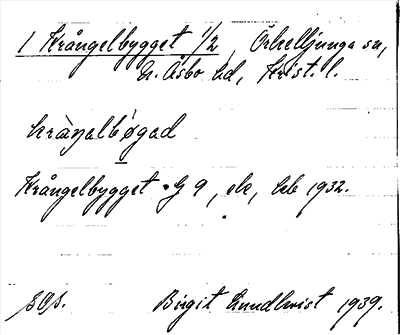 1 Krångelbygget 1/2, Örkelljunga sn,
N. Åsbo hd, Krist. l.
kràŋalbøgad
Krångelbygget G 9, ek, hb 1932.
Birgit Lundkvist 1939.